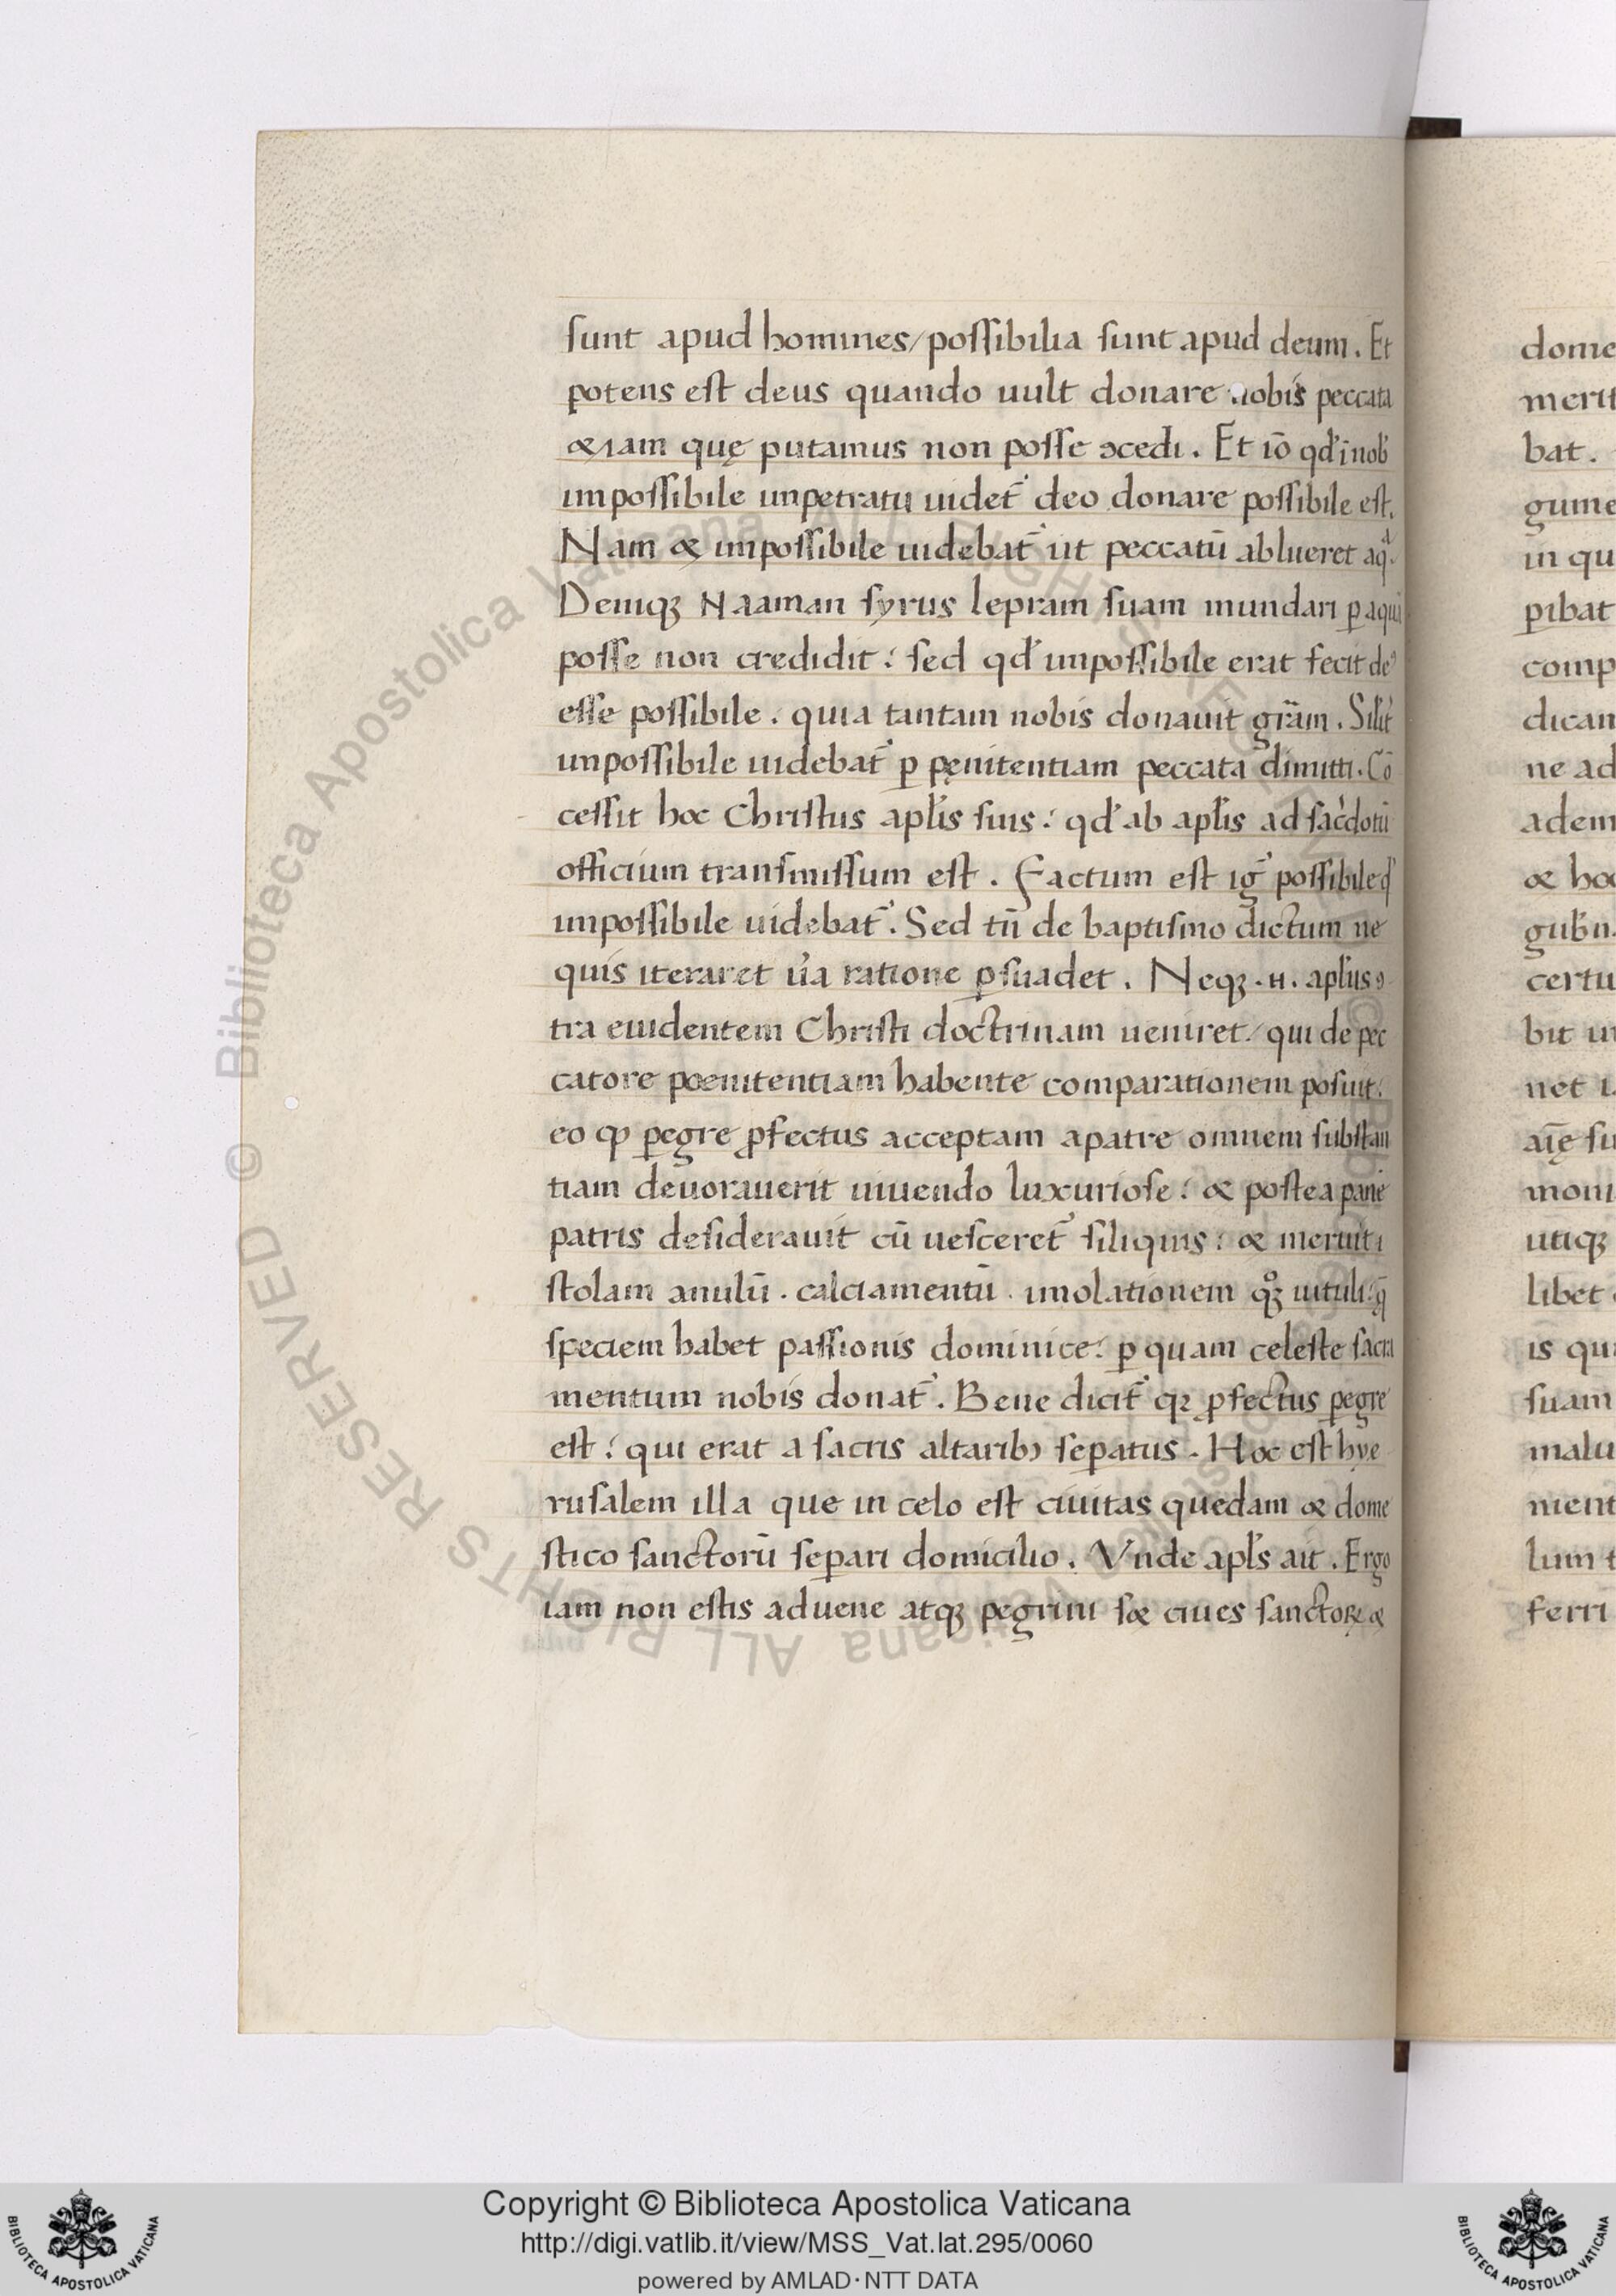 sunt apud homines/possibilia sunt apud deum. Et
potens est deus quando uult donare nobis peccata
& iam quę putamus non posse ↄcedi. Et iō qđ i nob̕
impossibile impetratu uidet̄ deo donare possibile est.
Nam & impossibile uidebat̄ ut peccatū ablueret aqᵃ.
Deniqꝫ Naaman syrus lepram suam mundari ꝑ aquā
posse non credidit: sed qđ impossibile erat fecit deꝰ
esse possibile. quia tantam nobis donauit grām. Silit̕
impossibile uidebat̄ ꝑ pęnitentiam peccata dimitti. Cō
cessit hoc Christus apl̕is suis: qđ ab apl̕is ad sac̕dotū
officium transmissum est. Factum est ig̕ possibile q̕
impossibile uidebat̄. Sed tn̄ de baptismo dictum ne
quis iteraret u̕a ratione ꝑsuadet. Neqꝫ .n. apl̕us ↄ
tra euidentem Christi doctrinam ueniret/ qui de pec
catore poenitentiam habente comparationem posuit:
eo ꝙ ꝑegre ꝓfectus acceptam apatre omnem substan
tiam deuorauerit uiuendo luxuriose: & postea panē
patris desiderauit cū uesceret̄ siliquis: & meruit
stolam anulū. calciamentū. imolationem qͦꝫ uituli: q̄
speciem habet passionis dominice: ꝑ quam celeste sacra
mentum nobis donat̄. Bene dicit̄ qꝛ ꝓfectus ꝑegre
est: qui erat a sacris altaribꝫ seꝑatus. Hoc est hye
rusalem illa que in celo est ciuitas quedam & dome
stico sanctorū seꝑari domicilio. Vnde apl̕s ait. Ergo
iam non estis aduene atqꝫ ꝑegrini s& ciues sanctoꝝ &
dome
merit
bat.
gume
in qu
ꝑibat
comp
dican
ne ad
adem
& hoc
gub̕n
certu
bit u
net
aīę su
moni
utiqꝫ
libet
is qui
suam
malu
ment
lum t
ferri
© Biblioteca Apostolica Vaticana ALL RIGHTS RESERVED
Copyright © Biblioteca Apostolica Vaticana
http://digi.vatlib.it/view/MSS_Vat.lat.295/0060
powered by AMLAD·NTT DATA
BIBLIOTECA APOSTOLICA VATICANA
BIBLIOTECA APOSTOLICA VATICANA